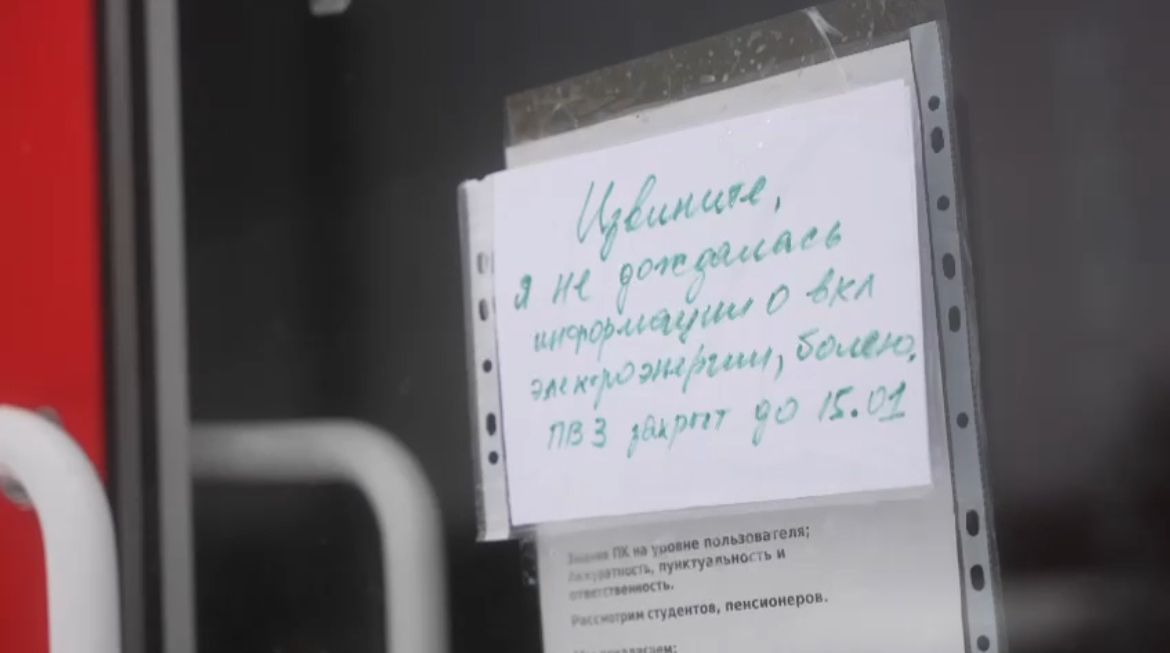 Извините,
я не дождалась
информации о вкл
электроэнергии, болею,
ПВЗ закрыт до 15.01
Знание ПК на уровне пользователя;
Аккуратность, пунктуальность и
ответственность.
Рассмотрим студентов, пенсионеров.